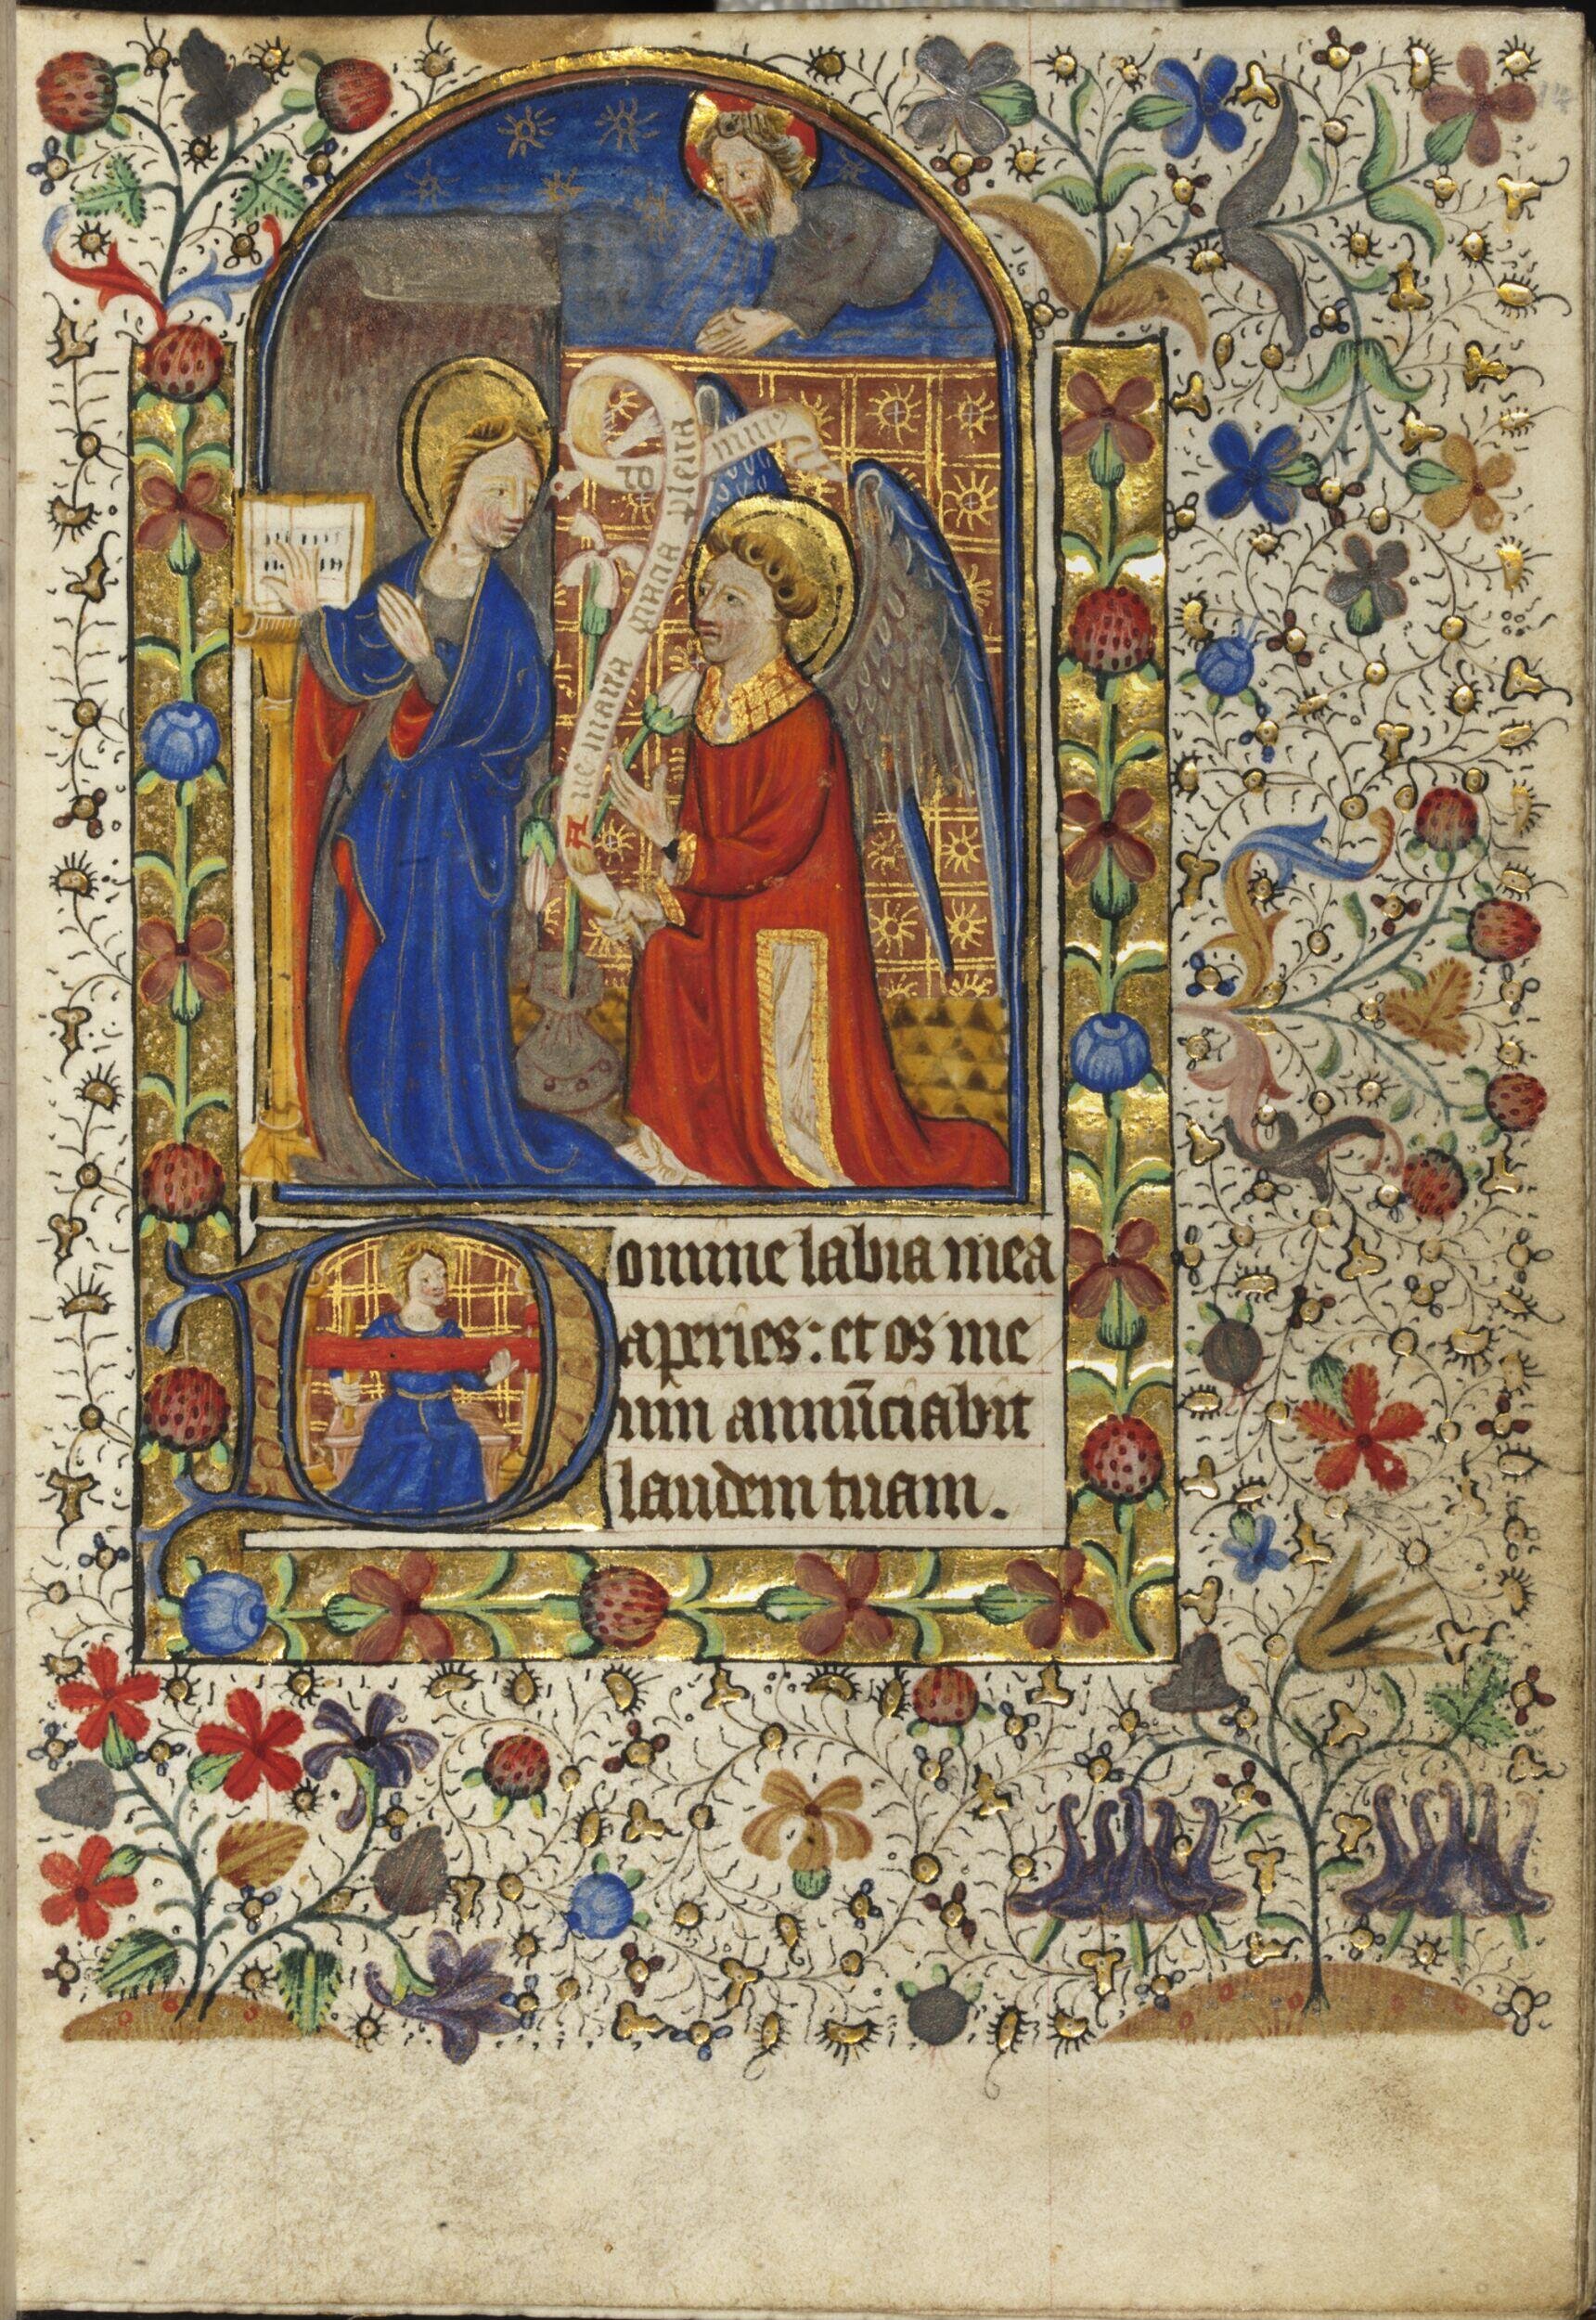 Aue maria gracia plena
Domine labia mea
aperies: et os me
um annūciabit
laudem tuam.